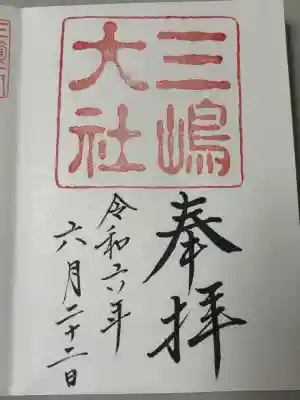 三嶋
大社
奉拝
令和六年
六月二十二日